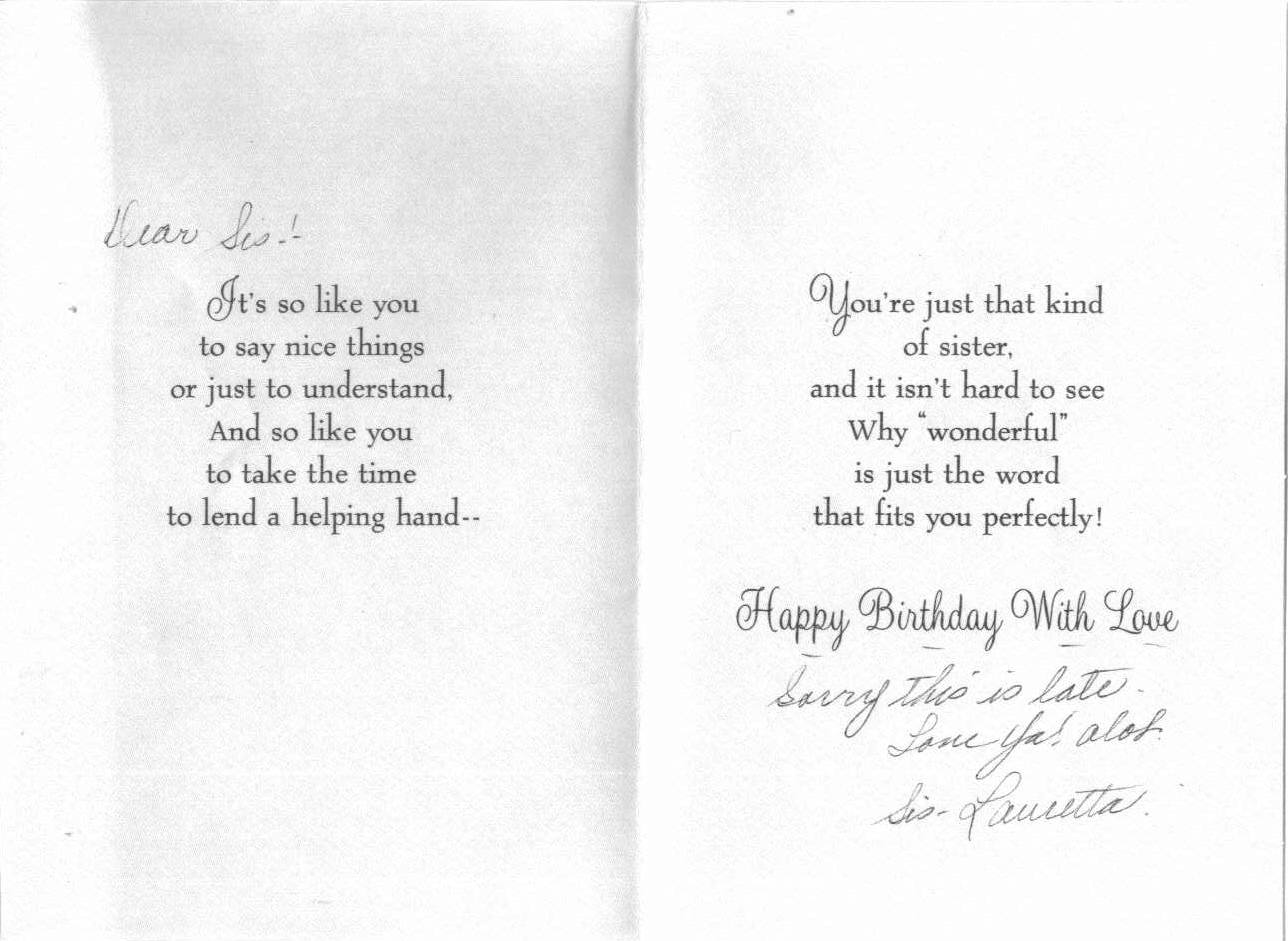 Dear Sis.!-
It's so like you
to say nice things
or just to understand,
And so like you
to take the time
to lend a helping hand--
You're just that kind
of sister,
and it isn't hard to see
Why "wonderful"
is just the word
that fits you perfectly!
Happy Birthday With Love
Sorry this is late.
Love Ya! alot.
Sis- Lauretta.